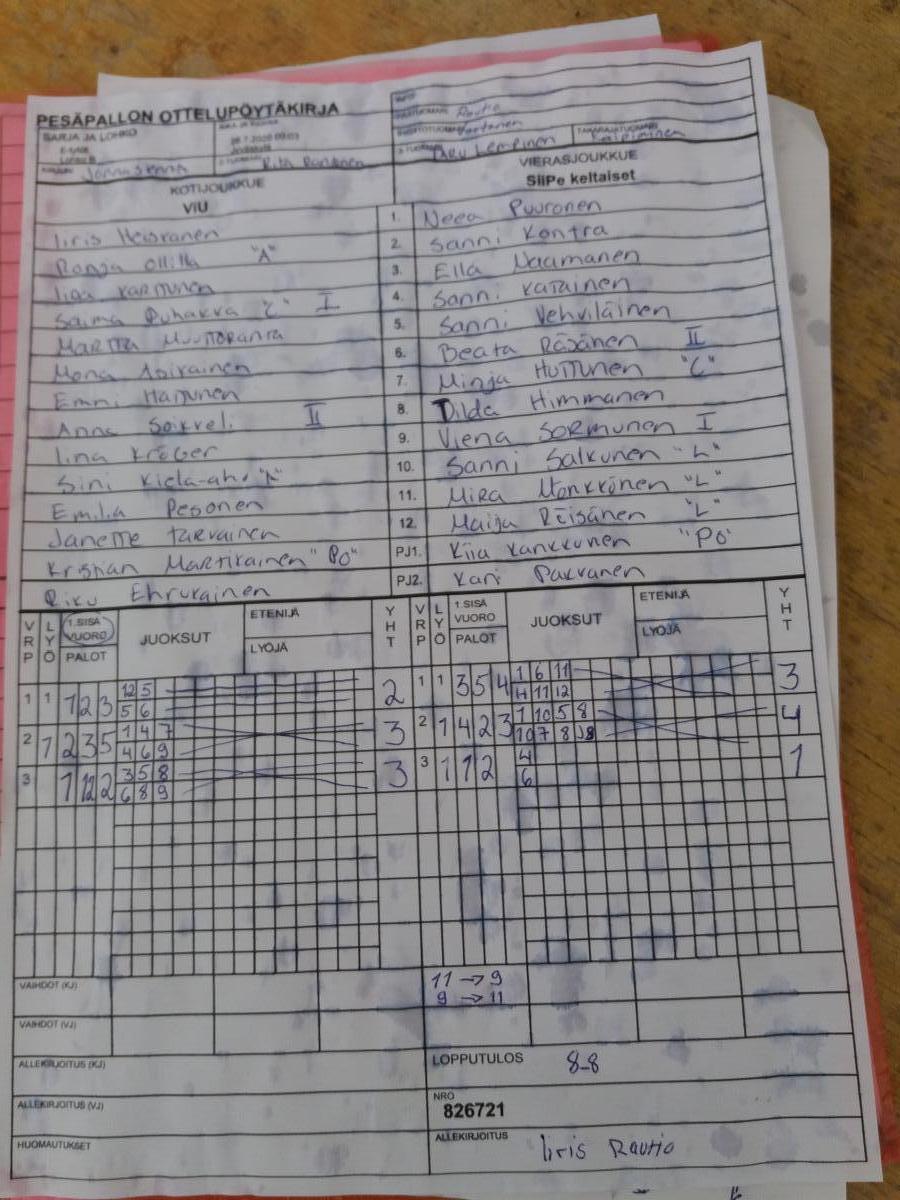 PESÄPALLON OTTELUPÖYTÄKIRJA
SARJA JA LOHKO
E-tytöt
Lohko B
Rautio
Tartanen
TAKARAJATUOMARI
Taru Lempinen
Rita Rantanen
KOTIJOUKKUE
VIU
VIERASJOUKKUE
SiiPe keltaiset
Iiris Heiskanen
1. Neea Puuronen
Ronja Ollila "A"
2. Sanni Kontra
Iida Karttunen
3. Ella Naamanen
Saima Puhakka "C" I
4. Sanni Karainen
Martta Muuttoranta
5. Sanni Vehviläinen
Mona Asikainen
6. Beata Räsänen II
Emmi Hattunen
7. Minja Huttunen "C"
Anna Soikkeli II
8. Tilda Himmanen
Iina Kröger
9. Viena Sormunen I
Sini Kiela-aho "A"
10. Sanni Salkunen "L"
Emilia Pesonen
11. Mira Mönkkönen "L"
Janette Tarvainen
12. Maija Räisänen "L"
Kristian Martikainen "PO"
PJ1. Kiia Kankkunen "PO"
Riku Ehrukainen
PJ2. Kari Pakvanen
VRP LYÖ 1.SISÄ VUORO PALOT JUOKSUT ETENIJÄ LYÖJÄ YHT
VRP LYÖ 1.SISÄ VUORO PALOT JUOKSUT ETENIJÄ LYÖJÄ YHT
1 1 1 2 3 12 5 2
5 6
1 1 3 5 4 1 6 11 3
4 11 12
2 7 2 3 5 1 4 7 3
4 6 9
2 1 4 2 3 1 10 5 8 4
10 7 8
3 1 12 2 3 5 8 3
6 8 9
3 1 1 2 4 1
6
VAIHDOT (KJ)
11 → 9
9 → 11
VAIHDOT (VJ)
ALLEKIRJOITUS (KJ)
LOPPUTULOS 8-8
ALLEKIRJOITUS (VJ)
NRO
826721
HUOMAUTUKSET
ALLEKIRJOITUS Iiris Rautio